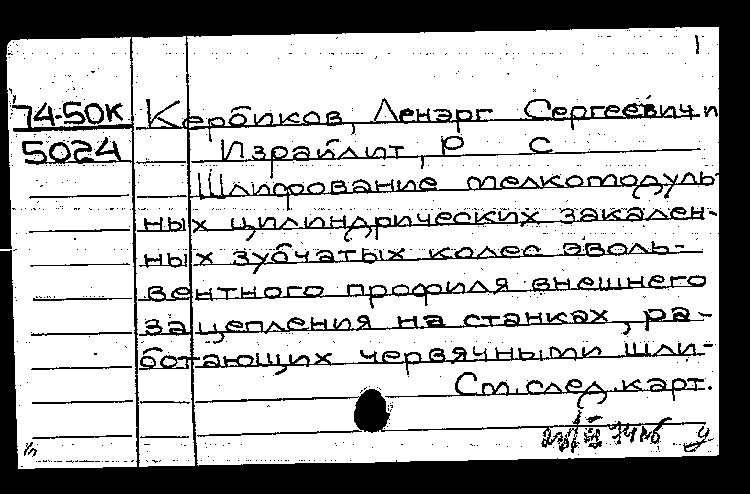 1
74-50К Кербиков, Ленарг Сергеевич и
5024 Израйлит, Р С
Шлифование мелкомодуль-
ных цилиндрических закален-
ных зубчатых колес эволь-
вентного профиля внешнего
зацепления на станках, ра-
ботающих червячными шли-
См. след. карт.